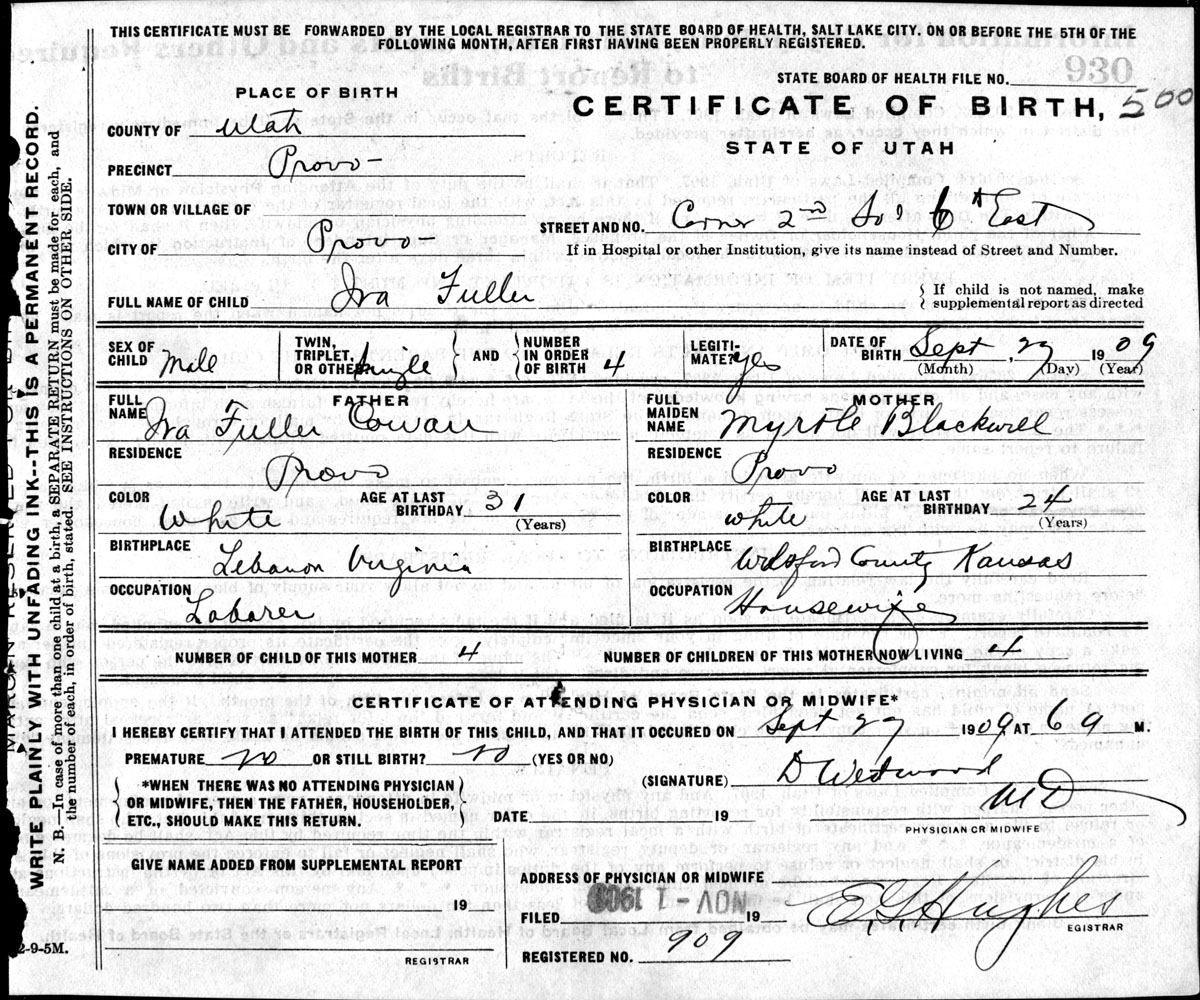 THIS CERTIFICATE MUST BE FORWARDED BY THE LOCAL REGISTRAR TO THE STATE BOARD OF HEALTH, SALT LAKE CITY. ON OR BEFORE THE 5TH OF THE
FOLLOWING MONTH, AFTER FIRST HAVING BEEN PROPERLY REGISTERED.
930
STATE BOARD OF HEALTH FILE NO.
PLACE OF BIRTH
CERTIFICATE OF BIRTH, 500
STATE OF UTAH
COUNTY OF Utah
PRECINCT Provo
TOWN OR VILLAGE OF
STREET AND NO. Corner 2nd So & 6th East
CITY OF Provo
If in Hospital or other Institution, give its name instead of Street and Number.
FULL NAME OF CHILD Iva Fuller
If child is not named, make
supplemental report as directed
SEX OF CHILD Male
TWIN, TRIPLET, OR OTHER Single
AND NUMBER IN ORDER OF BIRTH 4
LEGITIMATE? yes
DATE OF BIRTH Sept 27 1909
(Month) (Day) (Year)
FATHER
FULL NAME Iva Fuller Cowan
RESIDENCE
Provo
COLOR White
AGE AT LAST BIRTHDAY 31
(Years)
BIRTHPLACE
Lebanon Virginia
OCCUPATION
Laborer
MOTHER
FULL MAIDEN NAME Myrtle Blackwell
RESIDENCE
Provo
COLOR white
AGE AT LAST BIRTHDAY 24
(Years)
BIRTHPLACE
County Kansas
OCCUPATION
Housewife
NUMBER OF CHILD OF THIS MOTHER 4
NUMBER OF CHILDREN OF THIS MOTHER NOW LIVING 4
CERTIFICATE OF ATTENDING PHYSICIAN OR MIDWIFE*
I HEREBY CERTIFY THAT I ATTENDED THE BIRTH OF THIS CHILD, AND THAT IT OCCURED ON Sept 27 1909, AT 6 9 M.
PREMATURE no OR STILL BIRTH? no (YES OR NO)
*WHEN THERE WAS NO ATTENDING PHYSICIAN
OR MIDWIFE, THEN THE FATHER, HOUSEHOLDER,
ETC., SHOULD MAKE THIS RETURN.
(SIGNATURE) D Westwood
MD
DATE 19
PHYSICIAN OR MIDWIFE
GIVE NAME ADDED FROM SUPPLEMENTAL REPORT
19
REGISTRAR
ADDRESS OF PHYSICIAN OR MIDWIFE
FILED NOV - 1 1909 19
E G Hughes
EGISTRAR
REGISTERED NO. 909
WRITE PLAINLY WITH UNFADING INK--THIS IS A PERMANENT RECORD.
N. B.—In case of more than one child at a birth, a SEPARATE RETURN must be made for each, and
the number of each, in order of birth, stated. SEE INSTRUCTIONS ON OTHER SIDE.
2-9-5M.